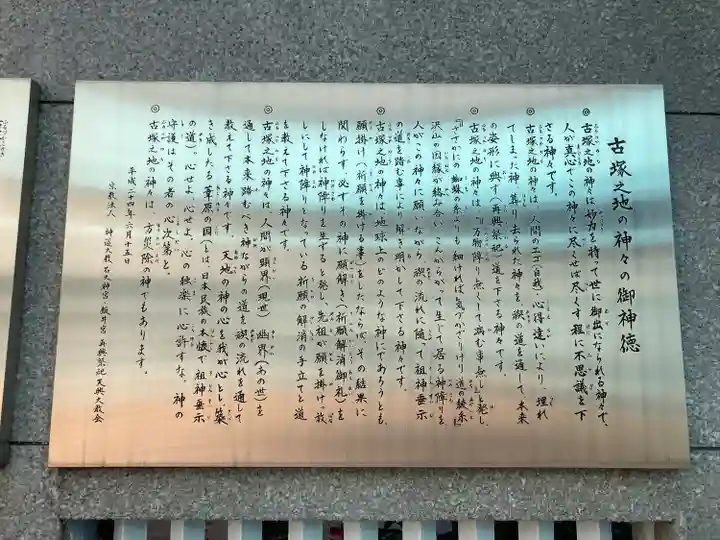 古塚之地の神々の御神徳
◎ 古塚之地の神々は妙力を持て世に御出になられる神々で、
人が真心でこの神々に尽くせば尽くす程に不思議を下
さる神々です。
◎ 古塚之地の神々は、人間のエゴ(自我)、心得違いにより、埋れ
てしまった神、葬り去られた神々を、禊の道を通して、本来
の姿形に興す(再興祭祀)道を下さる神々です。
◎ 古塚之地の神々は、『万物障り無くして病む事無し』と発し、
『ささにの蜘蛛の糸よりも細ければ気づかざりけり道の綾糸』
沢山の因縁が絡み合い、こんがらがって生じて居る神障りを
人がこの神々に願いながら、禊の流れに随って祖神垂示
の道を踏む事により解き明かして下さる神々です。
◎ 古塚之地の神々は地球上のどのような神にであろうとも、
願掛け(祈願を掛ける事)をしたならば、その結果に
関わらず必ずその神に願解き(祈願解消御礼)を
しなければ神障りを生ずると発し、先祖が願を掛けっ放
しにして神障りとなっている祈願の解消の手立てと道
を教えて下さる神々です。
◎ 古塚之地の神々は、人間が顕界(現世)幽界(あの世)を
通して本来踏むべき神ながらの道を禊の流れを通して
教えて下さる神々です。天地の神の心を我が心とし、築
き成したる葦原の国(とは、日本民族の本懐で祖神垂示
の道)、心せよ、心せよ、心の独楽に心許すな、神の
守護は、その者の心次第と。
◎ 古塚之地の神々は、方災除の神でもあります。
平成二十四年六月十五日
宗教法人 神道大教
再興祭祀 天興大教会